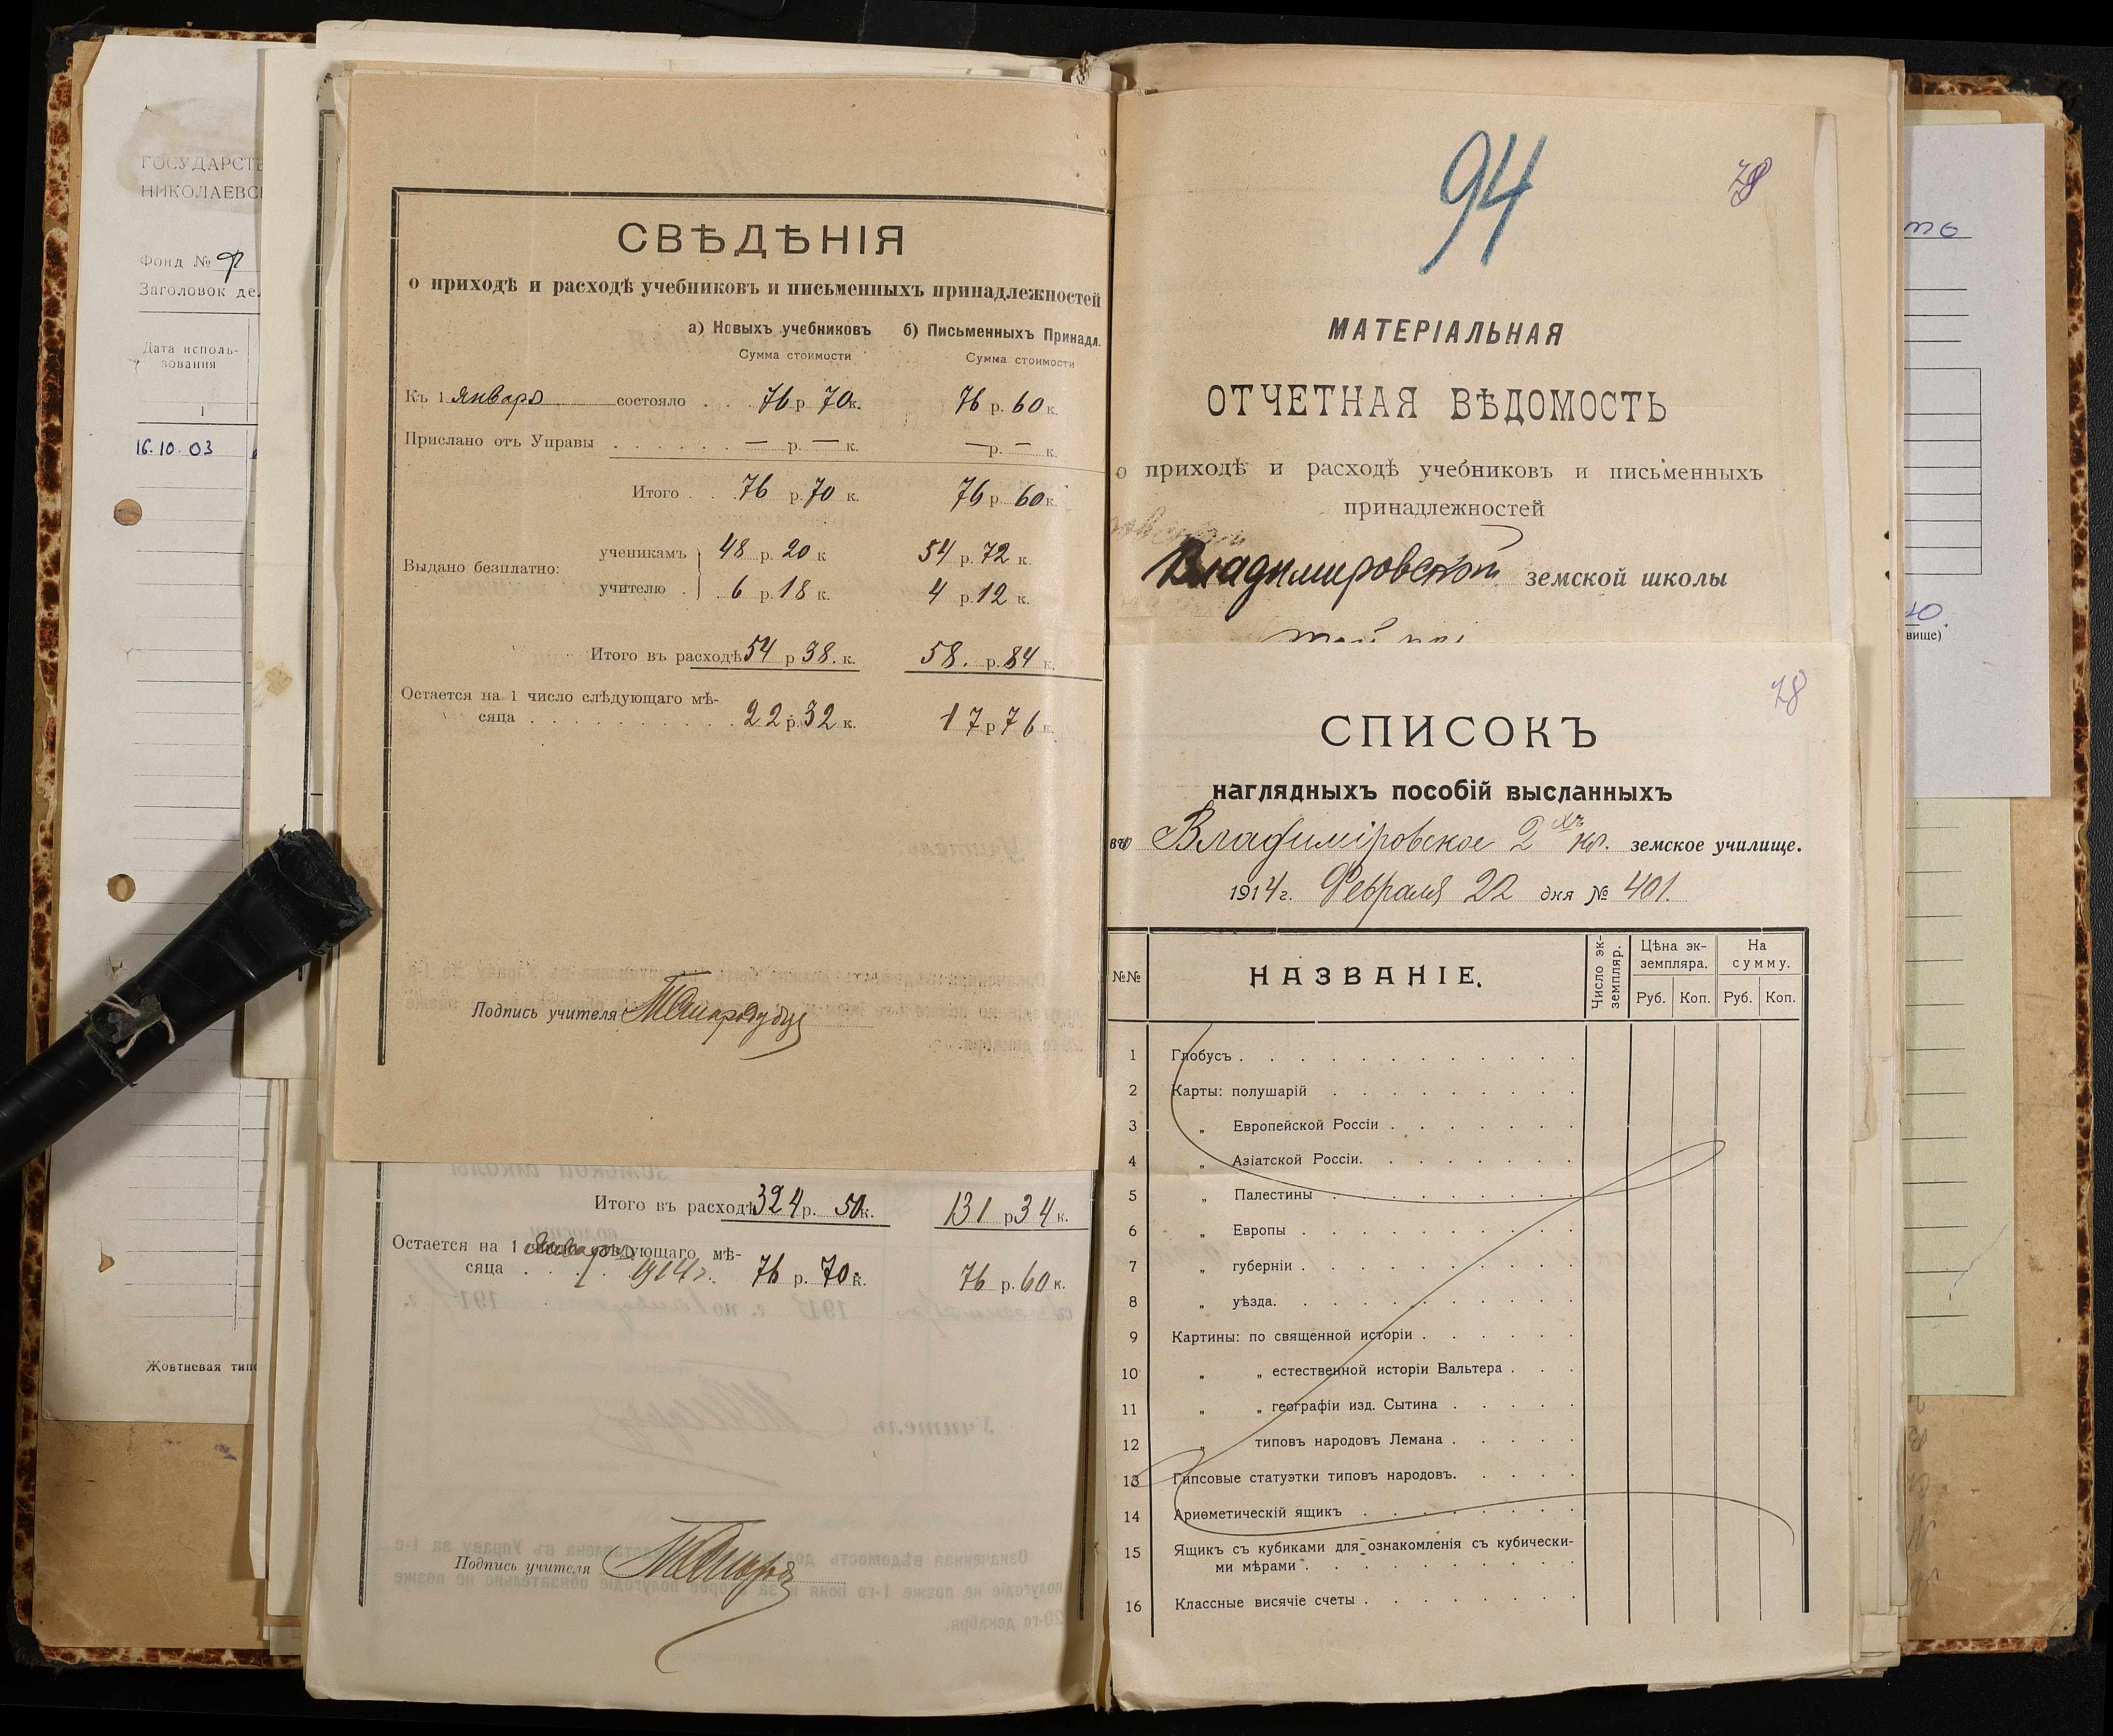 ГОСУДАРСТВ
НИКОЛАЕВС
Фонд № Ф
Заголовок де
Дата исполь-
зования
1
16.10.03
Жовтневая тип
СВѢДѢНІЯ
о приходѣ и расходѣ учебниковъ и письменныхъ принадлежностей
а) Новыхъ учебниковъ б) Письменныхъ Принадл.
Сумма стоимости Сумма стоимости
Къ 1 января состояло . . 76 р. 70 к. 76 р. 60 к.
Прислано отъ Управы . . . . . . — р. — к. — р. — к.
Итого . . 76 р. 70 к. 76 р. 60 к.
Выдано безплатно:
ученикамъ 48 р. 20 к. 54 р. 72 к.
учителю . 6 р. 18 к. 4 р. 12 к.
Итого въ расходѣ 54 р 38. к. 58. р. 84 к.
Остается на 1 число слѣдующаго мѣ-
сяца . . . . . . . . . . 22 р. 32 к. 17 р 76 к.
Подпись учителя
Итого въ расходѣ 324 р. 50 к. 131 р 34 к.
Остается на 1 слѣдующаго мѣ-
сяца . . . 1914 г. 76 р. 70 к. 76 р. 60 к.
Подпись учителя
94
78
МАТЕРІАЛЬНАЯ
ОТЧЕТНАЯ ВѢДОМОСТЬ
о приходѣ и расходѣ учебниковъ и письменныхъ
принадлежностей
Владимировской земской школы
78
СПИСОКЪ
наглядныхъ пособій высланныхъ
въ Владиміровское 2 хъ кл. земское училище.
1914 г. Февраля 22 дня № 401.
№№ НАЗВАНІЕ. Число эк-земпляр. Цѣна эк-земпляра. На сумму.
Руб. Коп. Руб. Коп.
1 Глобусъ . . . . . . . . . . . .
2 Карты: полушарій . . . . . . . . .
3 „ Европейской Россіи . . . . . . .
4 „ Азіатской Россіи. . . . . . . .
5 „ Палестины . . . . . . . . .
6 „ Европы . . . . . . . . . .
7 „ губерніи . . . . . . . . . .
8 „ уѣзда. . . . . . . . . . .
9 Картины: по священной исторіи . . . . . .
10 „ „ естественной исторіи Вальтера . . .
11 „ „ географіи изд. Сытина . . . . .
12 „ типовъ народовъ Лемана . . . . .
13 Гипсовые статуэтки типовъ народовъ. . . . .
14 Ариѳметическій ящикъ . . . . . . . .
15 Ящикъ съ кубиками для ознакомленія съ кубически-
ми мѣрами . . . . . . . . . .
16 Классные висячіе счеты . . . . . . . .
вище)